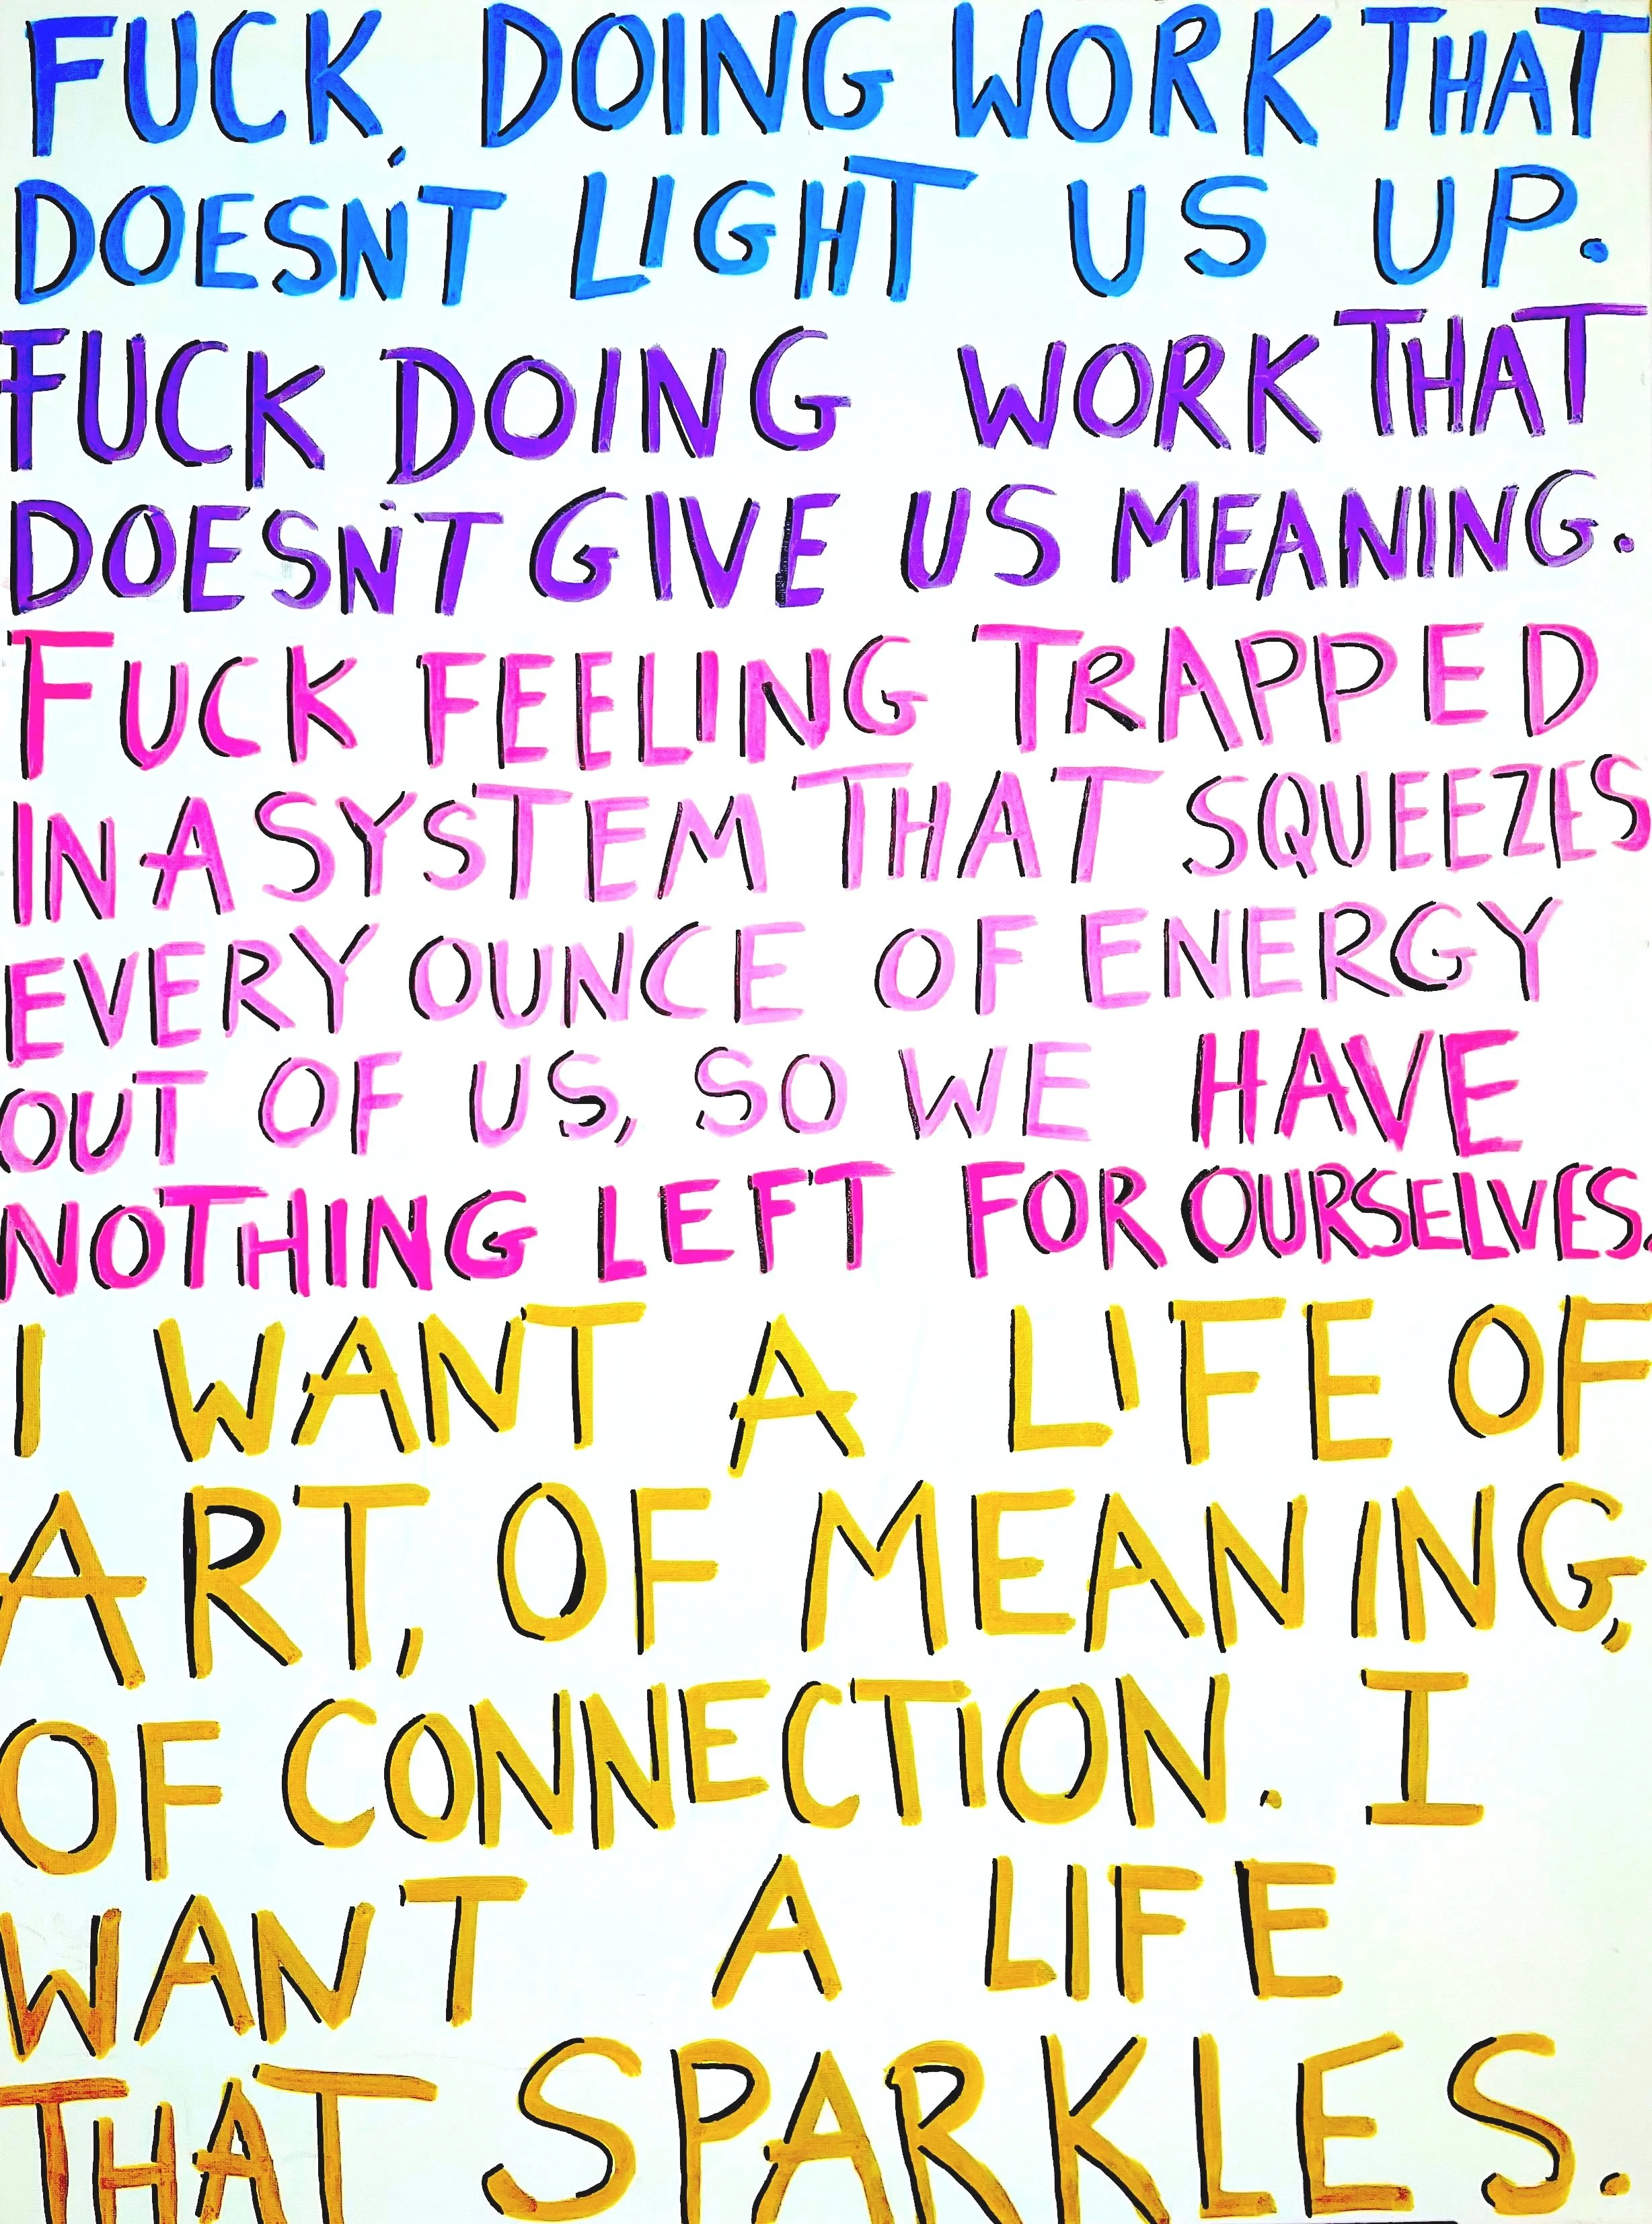 FUCK DOING WORK THAT
DOESN'T LIGHT US UP.
FUCK DOING WORK THAT
DOESN'T GIVE US MEANING.
FUCK FEELING TRAPPED
IN A SYSTEM THAT SQUEEZES
EVERY OUNCE OF ENERGY
OUT OF US, SO WE HAVE
NOTHING LEFT FOR OURSELVES.
I WANT A LIFE OF
ART, OF MEANING,
OF CONNECTION. I
WANT A LIFE
THAT SPARKLES.